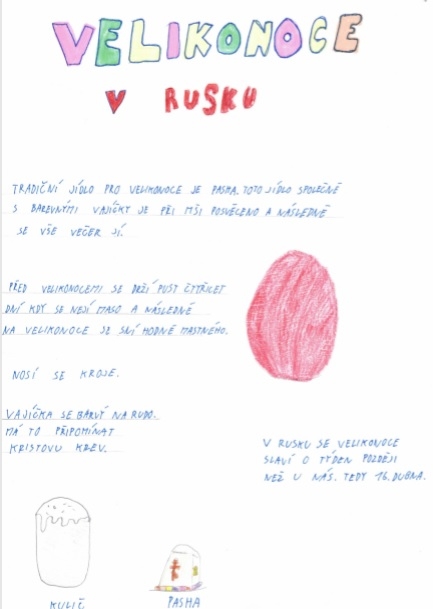 VELIKONOCE
V RUSKU
TRADIČNÍ JÍDLO PRO VELIKONOCE JE PASHA. TOTO JÍDLO SPOLEČNĚ
S BAREVNÝMI VAJÍČKY JE PŘI MŠI POSVĚCENO A NÁSLEDNĚ
SE VŠE VEČER JÍ.
PŘED VELIKONOCEMI SE DRŽÍ PUST ČTYŘICET
DNÍ KDY SE NEJÍ MASO A NÁSLEDNĚ
NA VELIKONOCE JE SNÍ HODNĚ MASTNÉHO.
NOSÍ SE KROJE.
VAJÍČKA SE BARVÝ NA RUDO.
MÁ TO PŘIPOMÍNAT
KRISTOVU KREV.
V RUSKU SE VELIKONOCE
SLAVÍ O TÝDEN POZDĚJI
NEŽ U NÁS. TEDY 16. DUBNA.
KULIČ
PASHA